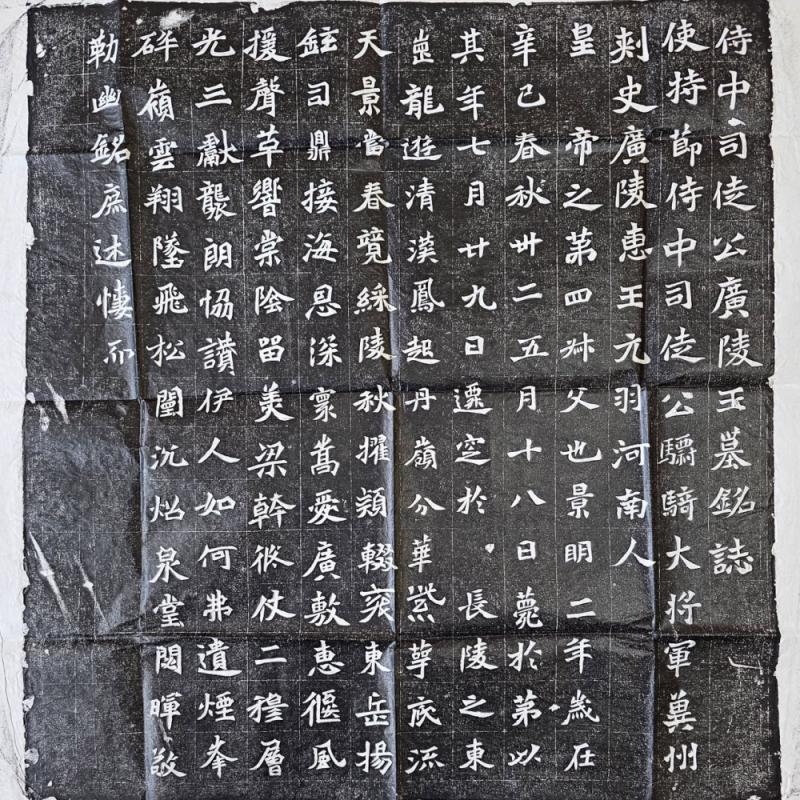 侍中司徒公廣陵王墓銘誌
使持節侍中司徒公驃騎大將軍冀州
刺史廣陵惠王元羽河南人
皇帝之第四叔父也景明二年歲在
辛巳春秋卅二五月十八日薨於第以
其年七月廿九日遷窆於長陵之東
崗龍遊清漢鳳起丹嶺分華紫萼底流
天景當春競綵陵秋擢穎輟袞東岳揚
鉉司鼎接海恩深寮萬愛廣敷惠偃風
援聲草響棠陰留美梁幹終仗二穆層
光三獻襲朗協讚伊人如何弗遺煙峯
碎嶺雲翔墜飛松闈沉炤泉堂閟暉敬
勒幽銘庶述悽而